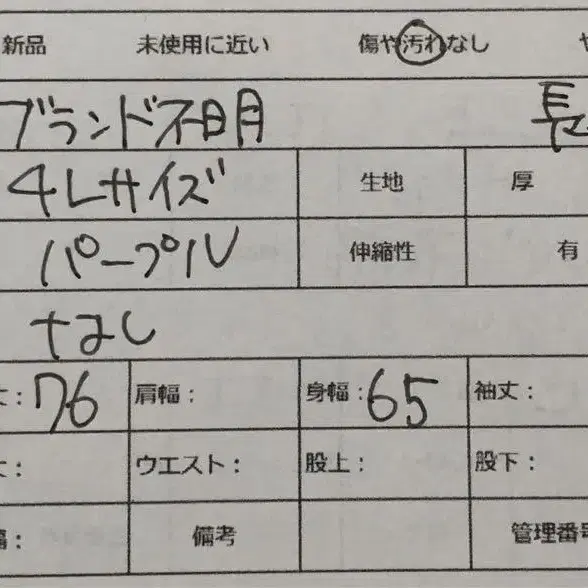 新品 未使用に近い 傷や汚れなし
ブランド不明 長
4Lサイズ 生地 厚
パープル 伸縮性 有
なし
: 76 肩幅: 身幅: 65 袖丈:
: ウエスト: 股上: 股下:
: 備考 管理番号